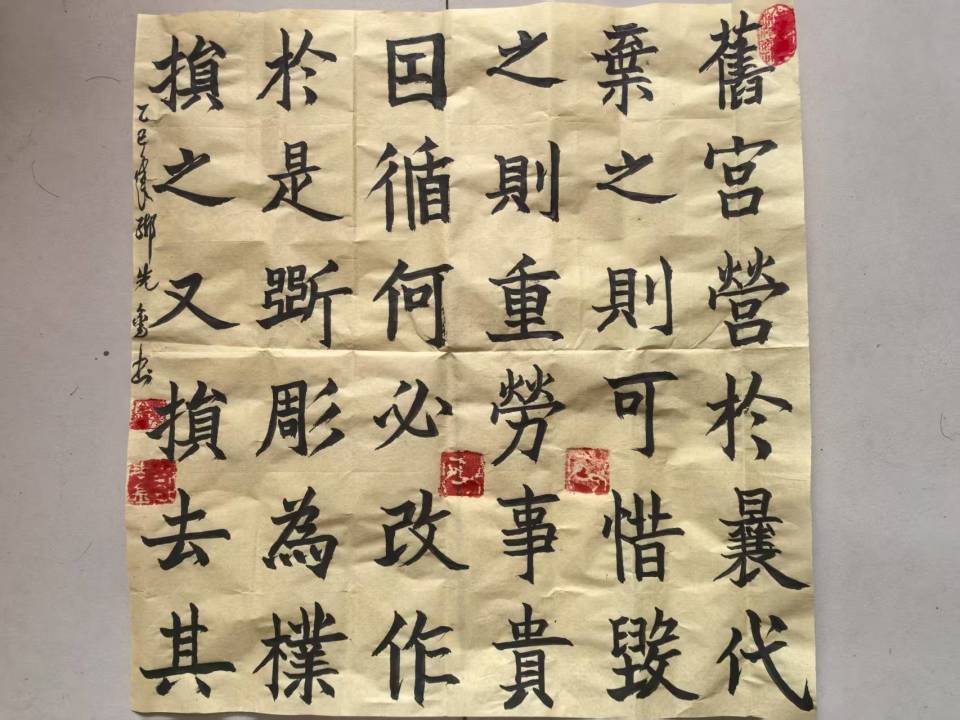 舊宮營於曩代
棄之則可惜毀
之則重勞事貴
囙循何必改作
於是斲彫為樸
損之又損去其
乙巳 先 书